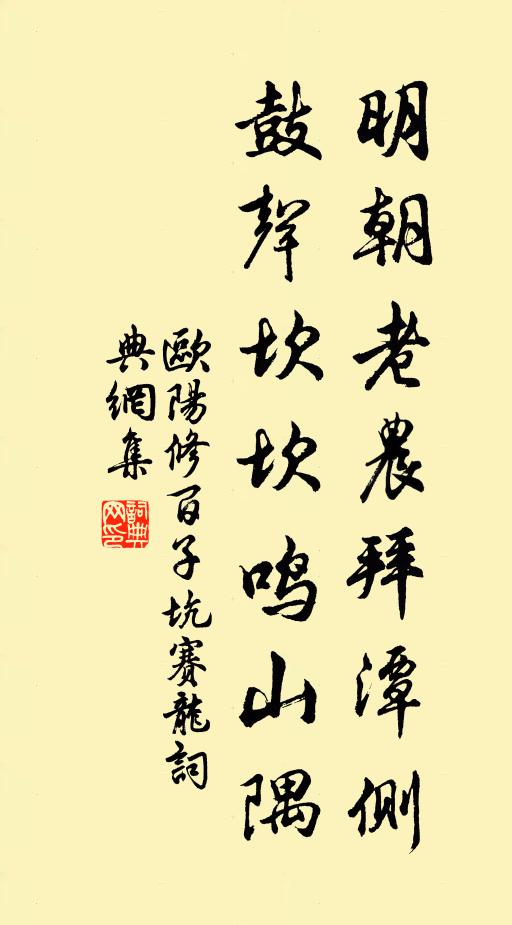 明朝老農拜潭側
鼓聲坎坎鳴山隅
歐陽修百子坑賽龍詞
典網集
詞典
网印